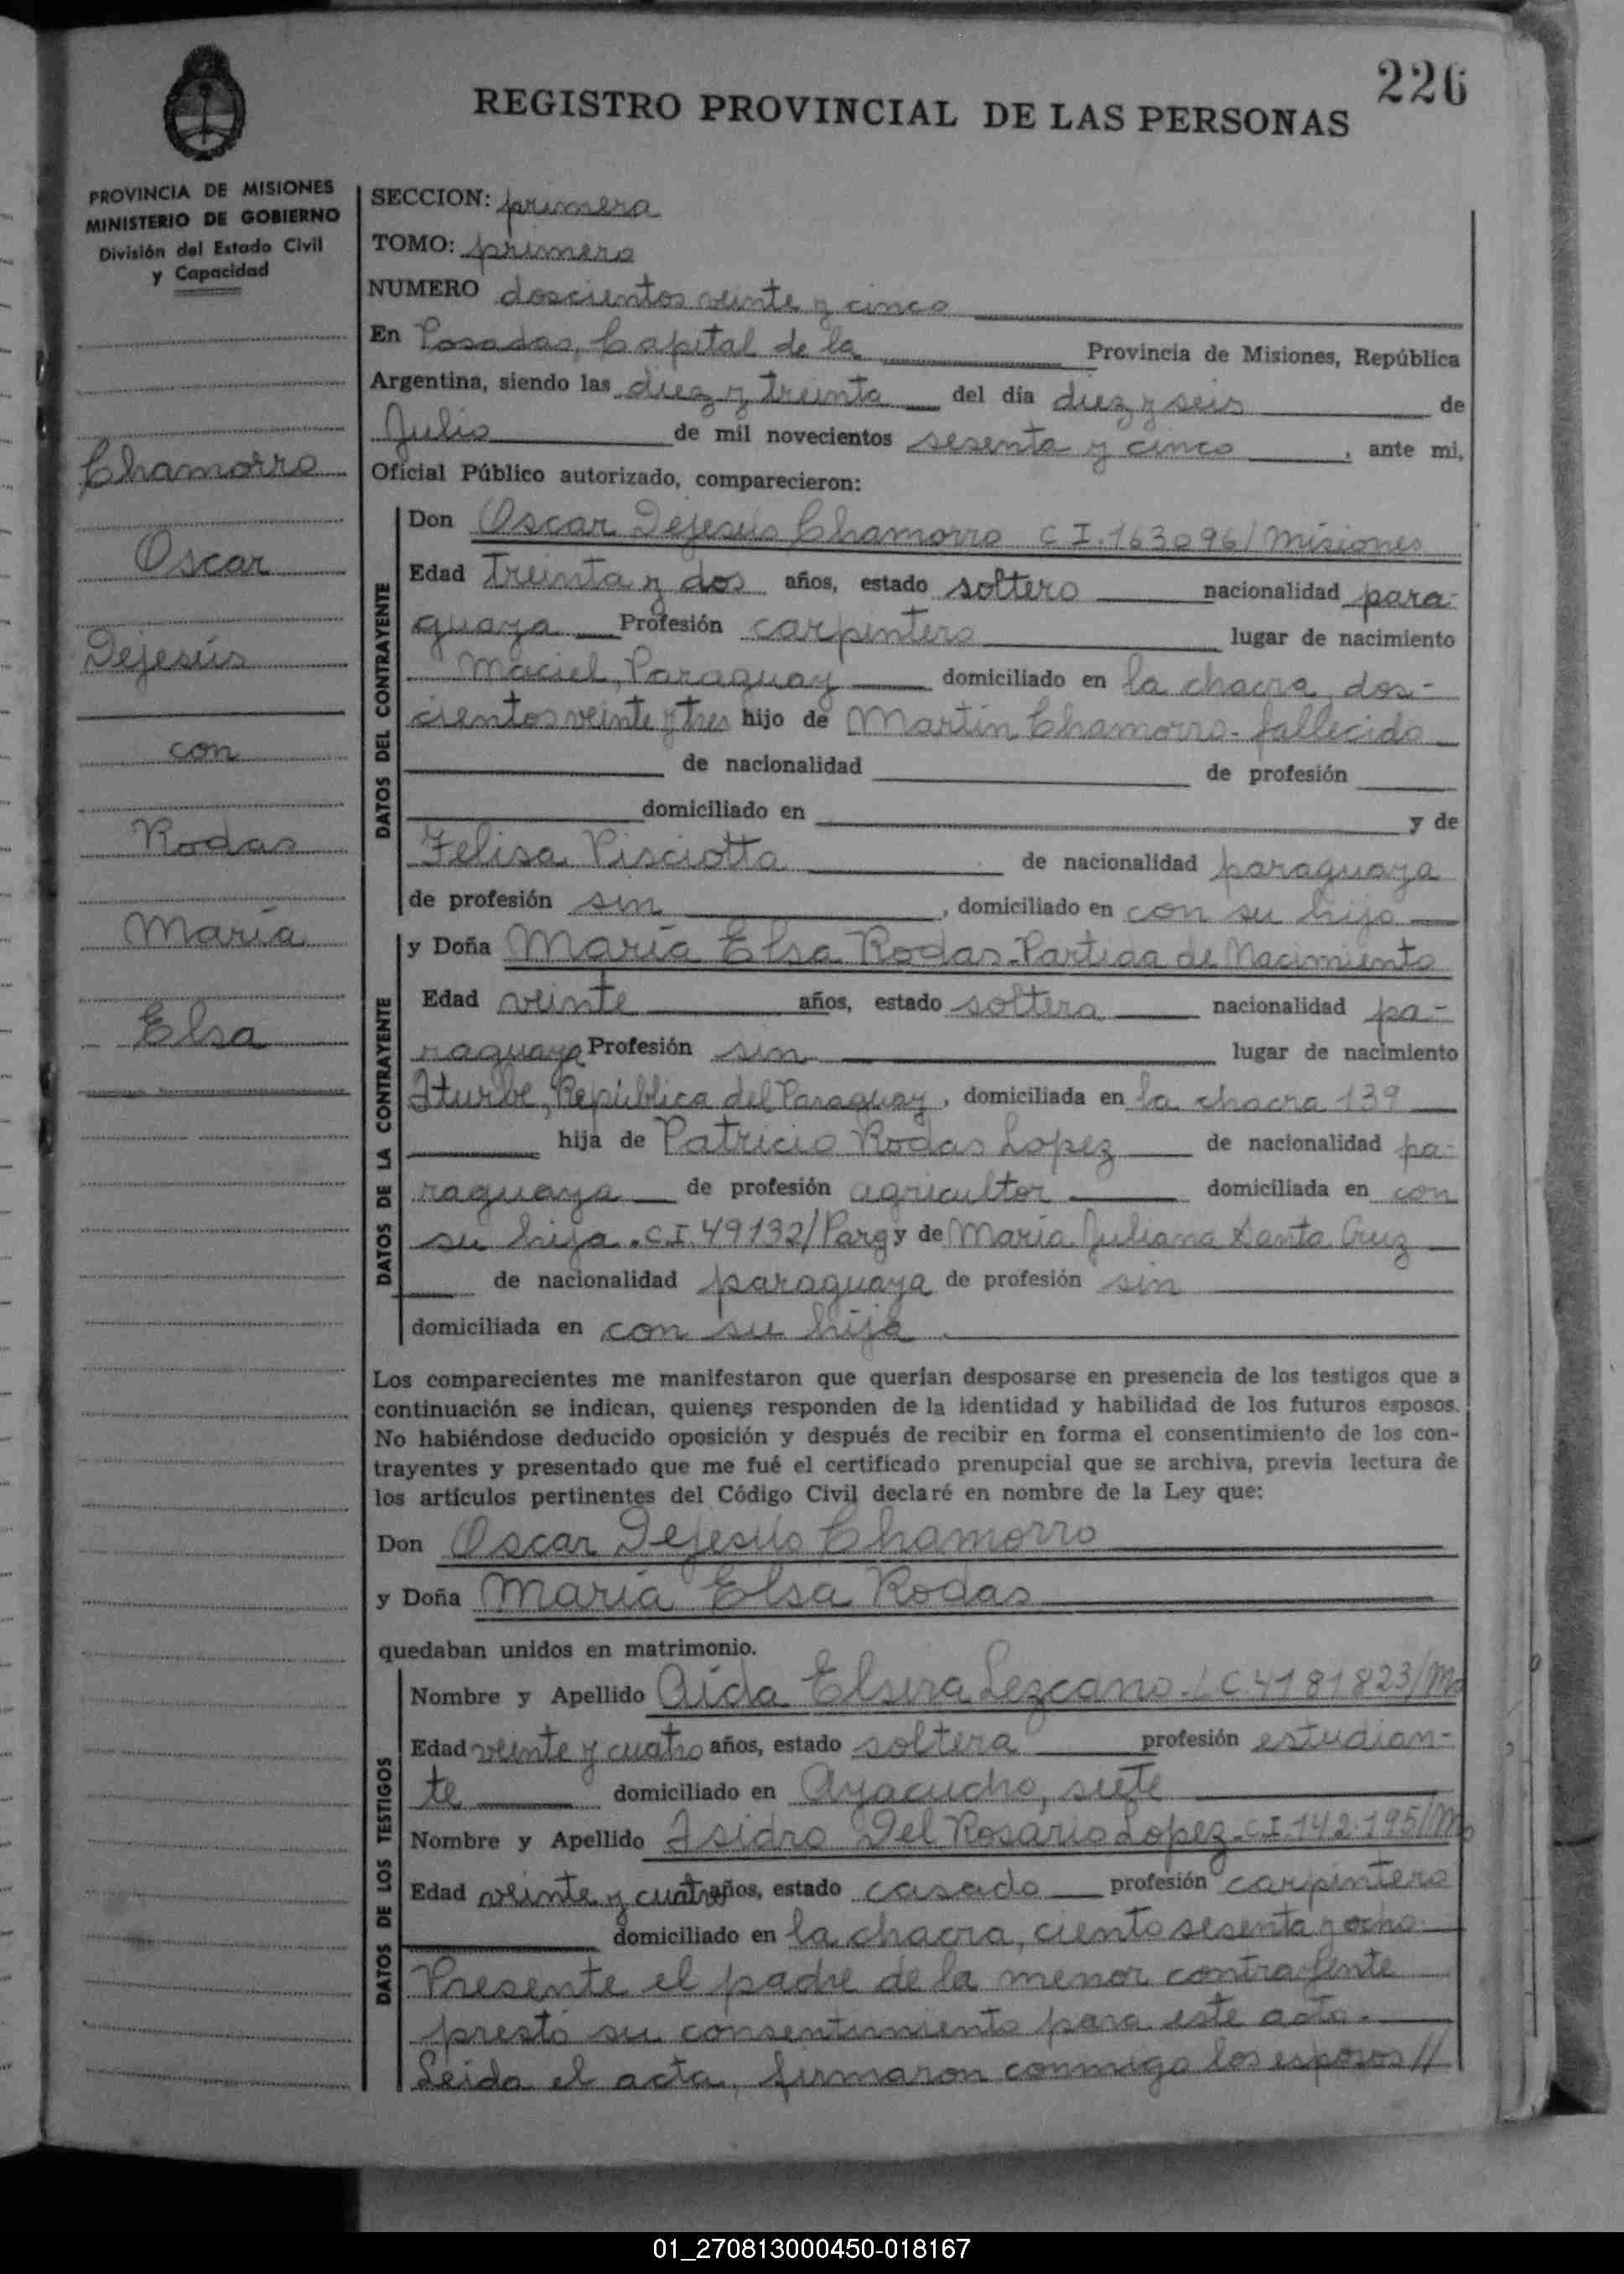 226
REGISTRO PROVINCIAL DE LAS PERSONAS
PROVINCIA DE MISIONES
MINISTERIO DE GOBIERNO
División del Estado Civil
y Capacidad
Chamorro
Oscar
Dejesús
con
Rodas
María
Elsa
SECCION: primera
TOMO: primero
NUMERO doscientos veinte y cinco
En Posadas, Capital de la Provincia de Misiones, República
Argentina, siendo las diez y treinta del día diez y seis de
Julio de mil novecientos sesenta y cinco, ante mi,
Oficial Público autorizado, comparecieron:
DATOS DEL CONTRAYENTE
Don Oscar Dejesús Chamorro C.I. 163096/Misiones
Edad Treinta y dos años, estado soltero nacionalidad para-
guaya Profesión carpintero lugar de nacimiento
Maciel, Paraguay domiciliado en la chacra, dos-
cientos veinte y tres hijo de Martín Chamorro - fallecido
de nacionalidad de profesión
domiciliado en y de
Felisa Pisciotta de nacionalidad paraguaya
de profesión sin, domiciliado en con su hijo
DATOS DE LA CONTRAYENTE
y Doña María Elsa Rodas - Partida de Nacimiento
Edad veinte años, estado soltera nacionalidad pa-
raguaya Profesión sin lugar de nacimiento
Iturbe, República del Paraguay, domiciliada en la chacra 139
hija de Patricio Rodas Lopez de nacionalidad pa-
raguaya de profesión agricultor domiciliada en con
su hija. C.I. 49132/Parg y de María Juliana Santa Cruz
de nacionalidad paraguaya de profesión sin
domiciliada en con su hija.
Los comparecientes me manifestaron que querían desposarse en presencia de los testigos que a
continuación se indican, quienes responden de la identidad y habilidad de los futuros esposos.
No habiéndose deducido oposición y después de recibir en forma el consentimiento de los con-
trayentes y presentado que me fué el certificado prenupcial que se archiva, previa lectura de
los artículos pertinentes del Código Civil declaré en nombre de la Ley que:
Don Oscar Dejesús Chamorro
y Doña María Elsa Rodas
quedaban unidos en matrimonio.
DATOS DE LOS TESTIGOS
Nombre y Apellido Aída Elvira Lezcano - L.C. 4181823/Mo
Edad veinte y cuatro años, estado soltera profesión estudian-
te domiciliado en Ayacucho, siete
Nombre y Apellido Isidro Del Rosario Lopez - C.I. 142.195/Mo
Edad veinte y cuatro años, estado casado profesión carpintero
domiciliado en la chacra, ciento sesenta y ocho.
Presente el padre de la menor contrayente
prestó su consentimiento para este acto.
Leida el acta, firmaron conmigo los esposos//
01_270813000450-018167